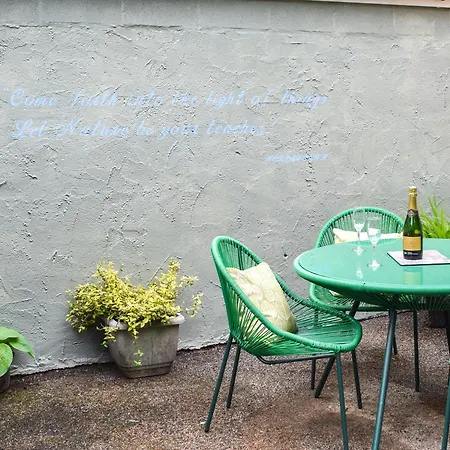 Come forth into the light of things
Let Nature be your teacher